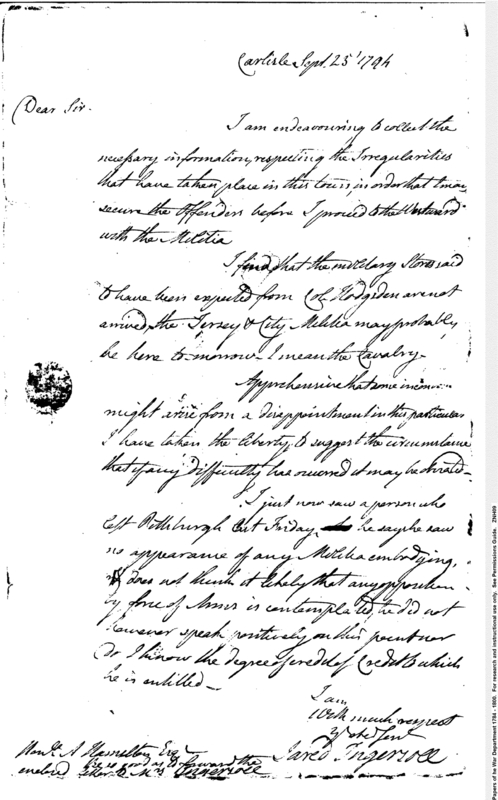 Carlisle Sept. 25' 1794
Dear Sir.
I am endeavouring to collect the
necessary information, respecting the Irregularities
that have taken place in this town, in order that I may
secure the Offenders before I proceed to the Westward
with the Militia
I find that the military Stores said
to have been expected from Col. Hodgsden are not
arrived, the Jersey & City Militia may probably
be here to-morrow - I mean the Cavalry -
Apprehensive that some
might arise from a disappointment in this particular
I have taken the liberty to suggest the circumstance
that if any difficulty has occurred it may be obviated -
I just now saw a person who
left Pittsburgh last Friday, he says he saw
no appearance of any Militia embodying,
does not think it likely that any opposition
by force of Arms is contemplated, he did not
however speak positively on this point nor
do I know the degree of Credit to which
he is entitled -
I am
With much respect
Jared Ingersoll
A Hamilton Esq
be so good as to forward the
enclosed letter to Mrs Ingersoll
Papers of he War Department 1784 - 1800. For research and instructional use only. See Permissions Guide. ZNH09